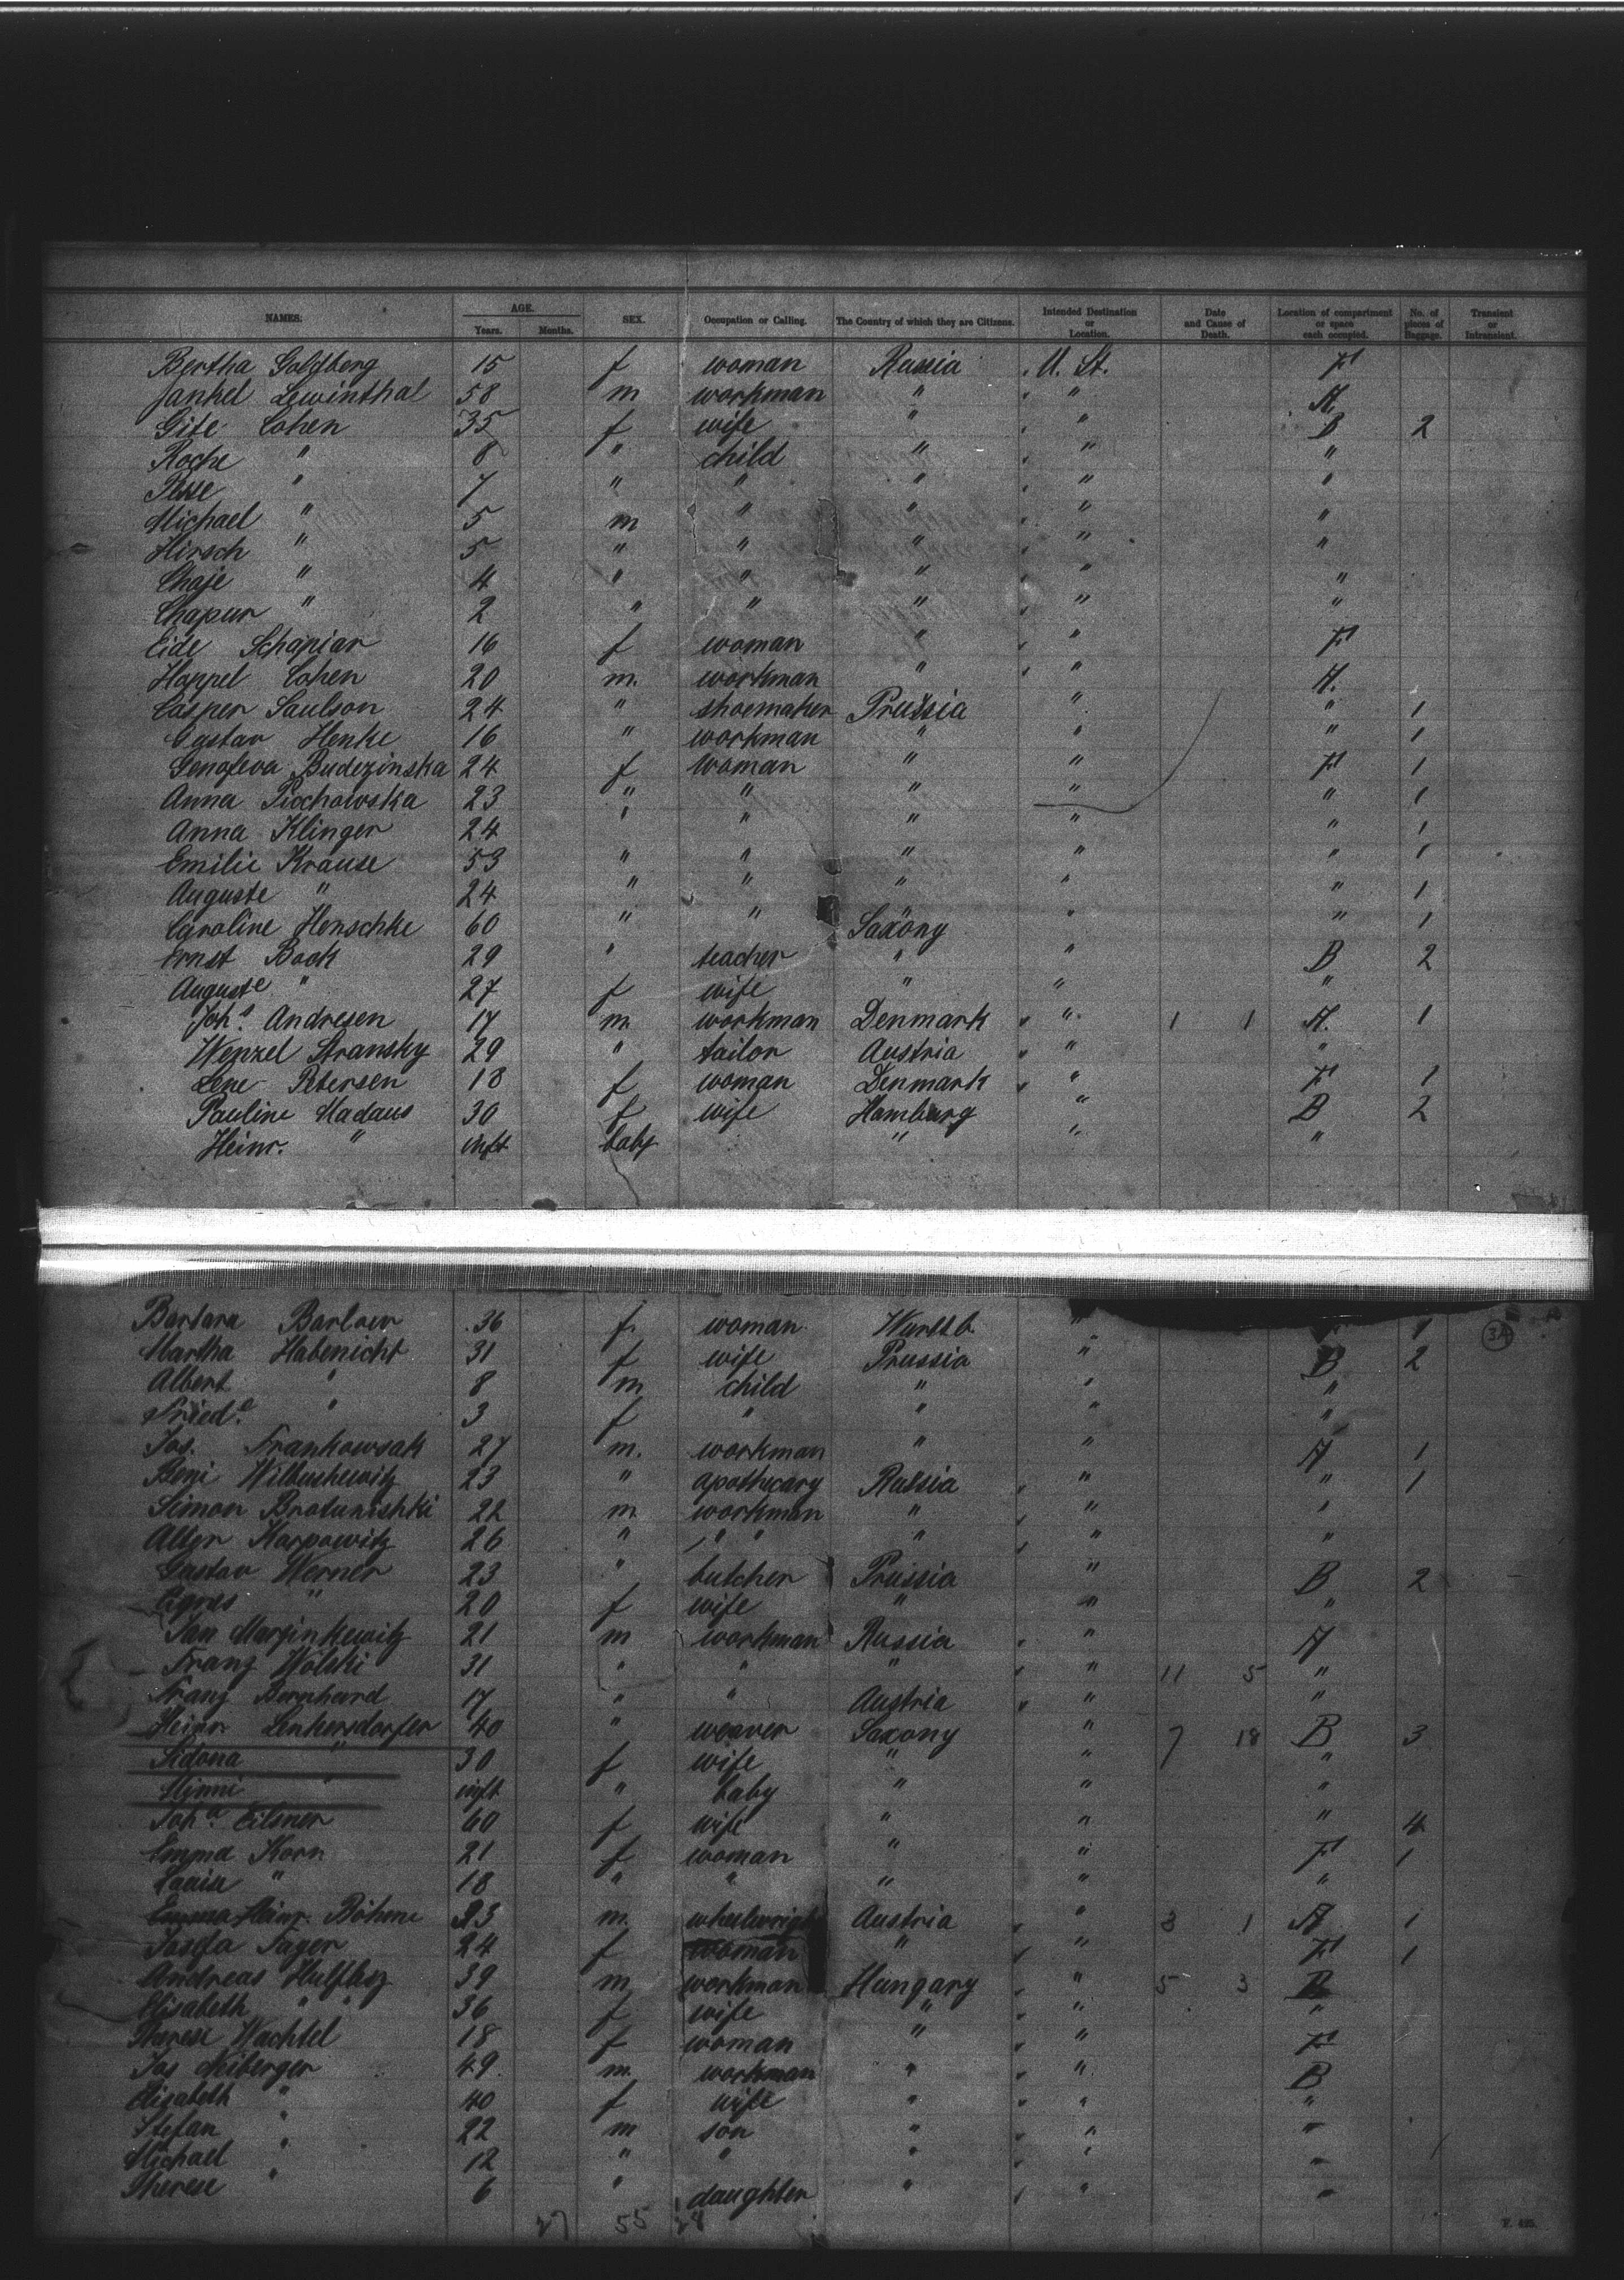 NAMES. AGE. SEX. Occupation or Calling. The Country of which they are Citizens. Intended Destination or Location. Date and Cause of Death. Location of compartment or space each occupied. No. of pieces of Baggage. Transient or Intransient.
Years. Months.
Bertha Goldberg 15 f woman Russia U. St. F
Jankel Lewinthal 58 m workman " " A.
Gite Cohen 35 f wife " " B 2
Roche " 8 " child " " "
Pesse " 7 " " " " "
Michael " 5 m " " " "
Hirsch " 5 " " " " "
Chaje " 4 " " " " "
Chapur " 2 " " " " "
Eide Schapiar 16 f woman " " F
Happel Cohen 20 m. workman " " A.
Casper Saulson 24 " shoemaker Prussia " " 1
Gustav Henke 16 " workman " " " 1
Genofeva Budezinska 24 f woman " " F 1
Anna Piochowska 23 " " " " " 1
Anna Klinger 24 " " " " " 1
Emilie Krause 53 " " " " " 1
Auguste " 24 " " " " " 1
Caroline Henschke 60 " " Saxony " " 1
Ernst Bock 29 " teacher " " B 2
Auguste " 27 f wife " " "
Johs. Andresen 17 m workman Denmark " 1 1 A. 1
Wenzel Stransky 29 " tailor Austria " "
Lene Petersen 18 f woman Denmark " F 1
Pauline Madaus 30 f wife Hamburg " B 2
Heinr. " inft baby " " "
Barbara Barlow 36 f. woman Wurttb. " 1
34
Martha Habenicht 31 f wife Prussia " B 2
Albert " 8 m child " " "
Friede. " 3 f " " " "
Jos. Frankowsak 27 m. workman " " A 1
Beni Wilbushewitz 23 " apothecary Russia " " 1
Simon Brotunishki 22 m workman " " "
Alter Karpowitz 26 " " " " " "
Gustav Werner 23 " butcher Prussia " B 2
Agnes " 20 f wife " " "
Jan Marzinkewitz 21 m workman Russia " A
Franz Wolski 31 " " " " 11 5 "
Franz Bernhard 17 " " Austria " "
Heinr. Lenkersdorfer 40 " weaver Saxony " 7 18 B 3
Sidona " 30 f wife " " "
Minni " inft " baby " " "
Joha. Eilsner 60 f wife " " " 4
Emma Korn 21 f woman " " F 1
Louise " 18 " " " " "
Emma Heinr. Böhme 23 m. wheelwright Austria " 3 1 A 1
Josefa Jager 24 f woman " " F 1
Andreas 39 m workman Hungary " 5 3 B
Elisabeth " 36 f wife " " "
Therese Wachtel 18 f woman " " F
Jos Neiberger 49 m. workman " " B
Elisabeth " 40 f wife " " "
Stefan " 22 m son " " "
Michael " 12 " " " " "
Therese " 6 " daughter " " "
27 55 28